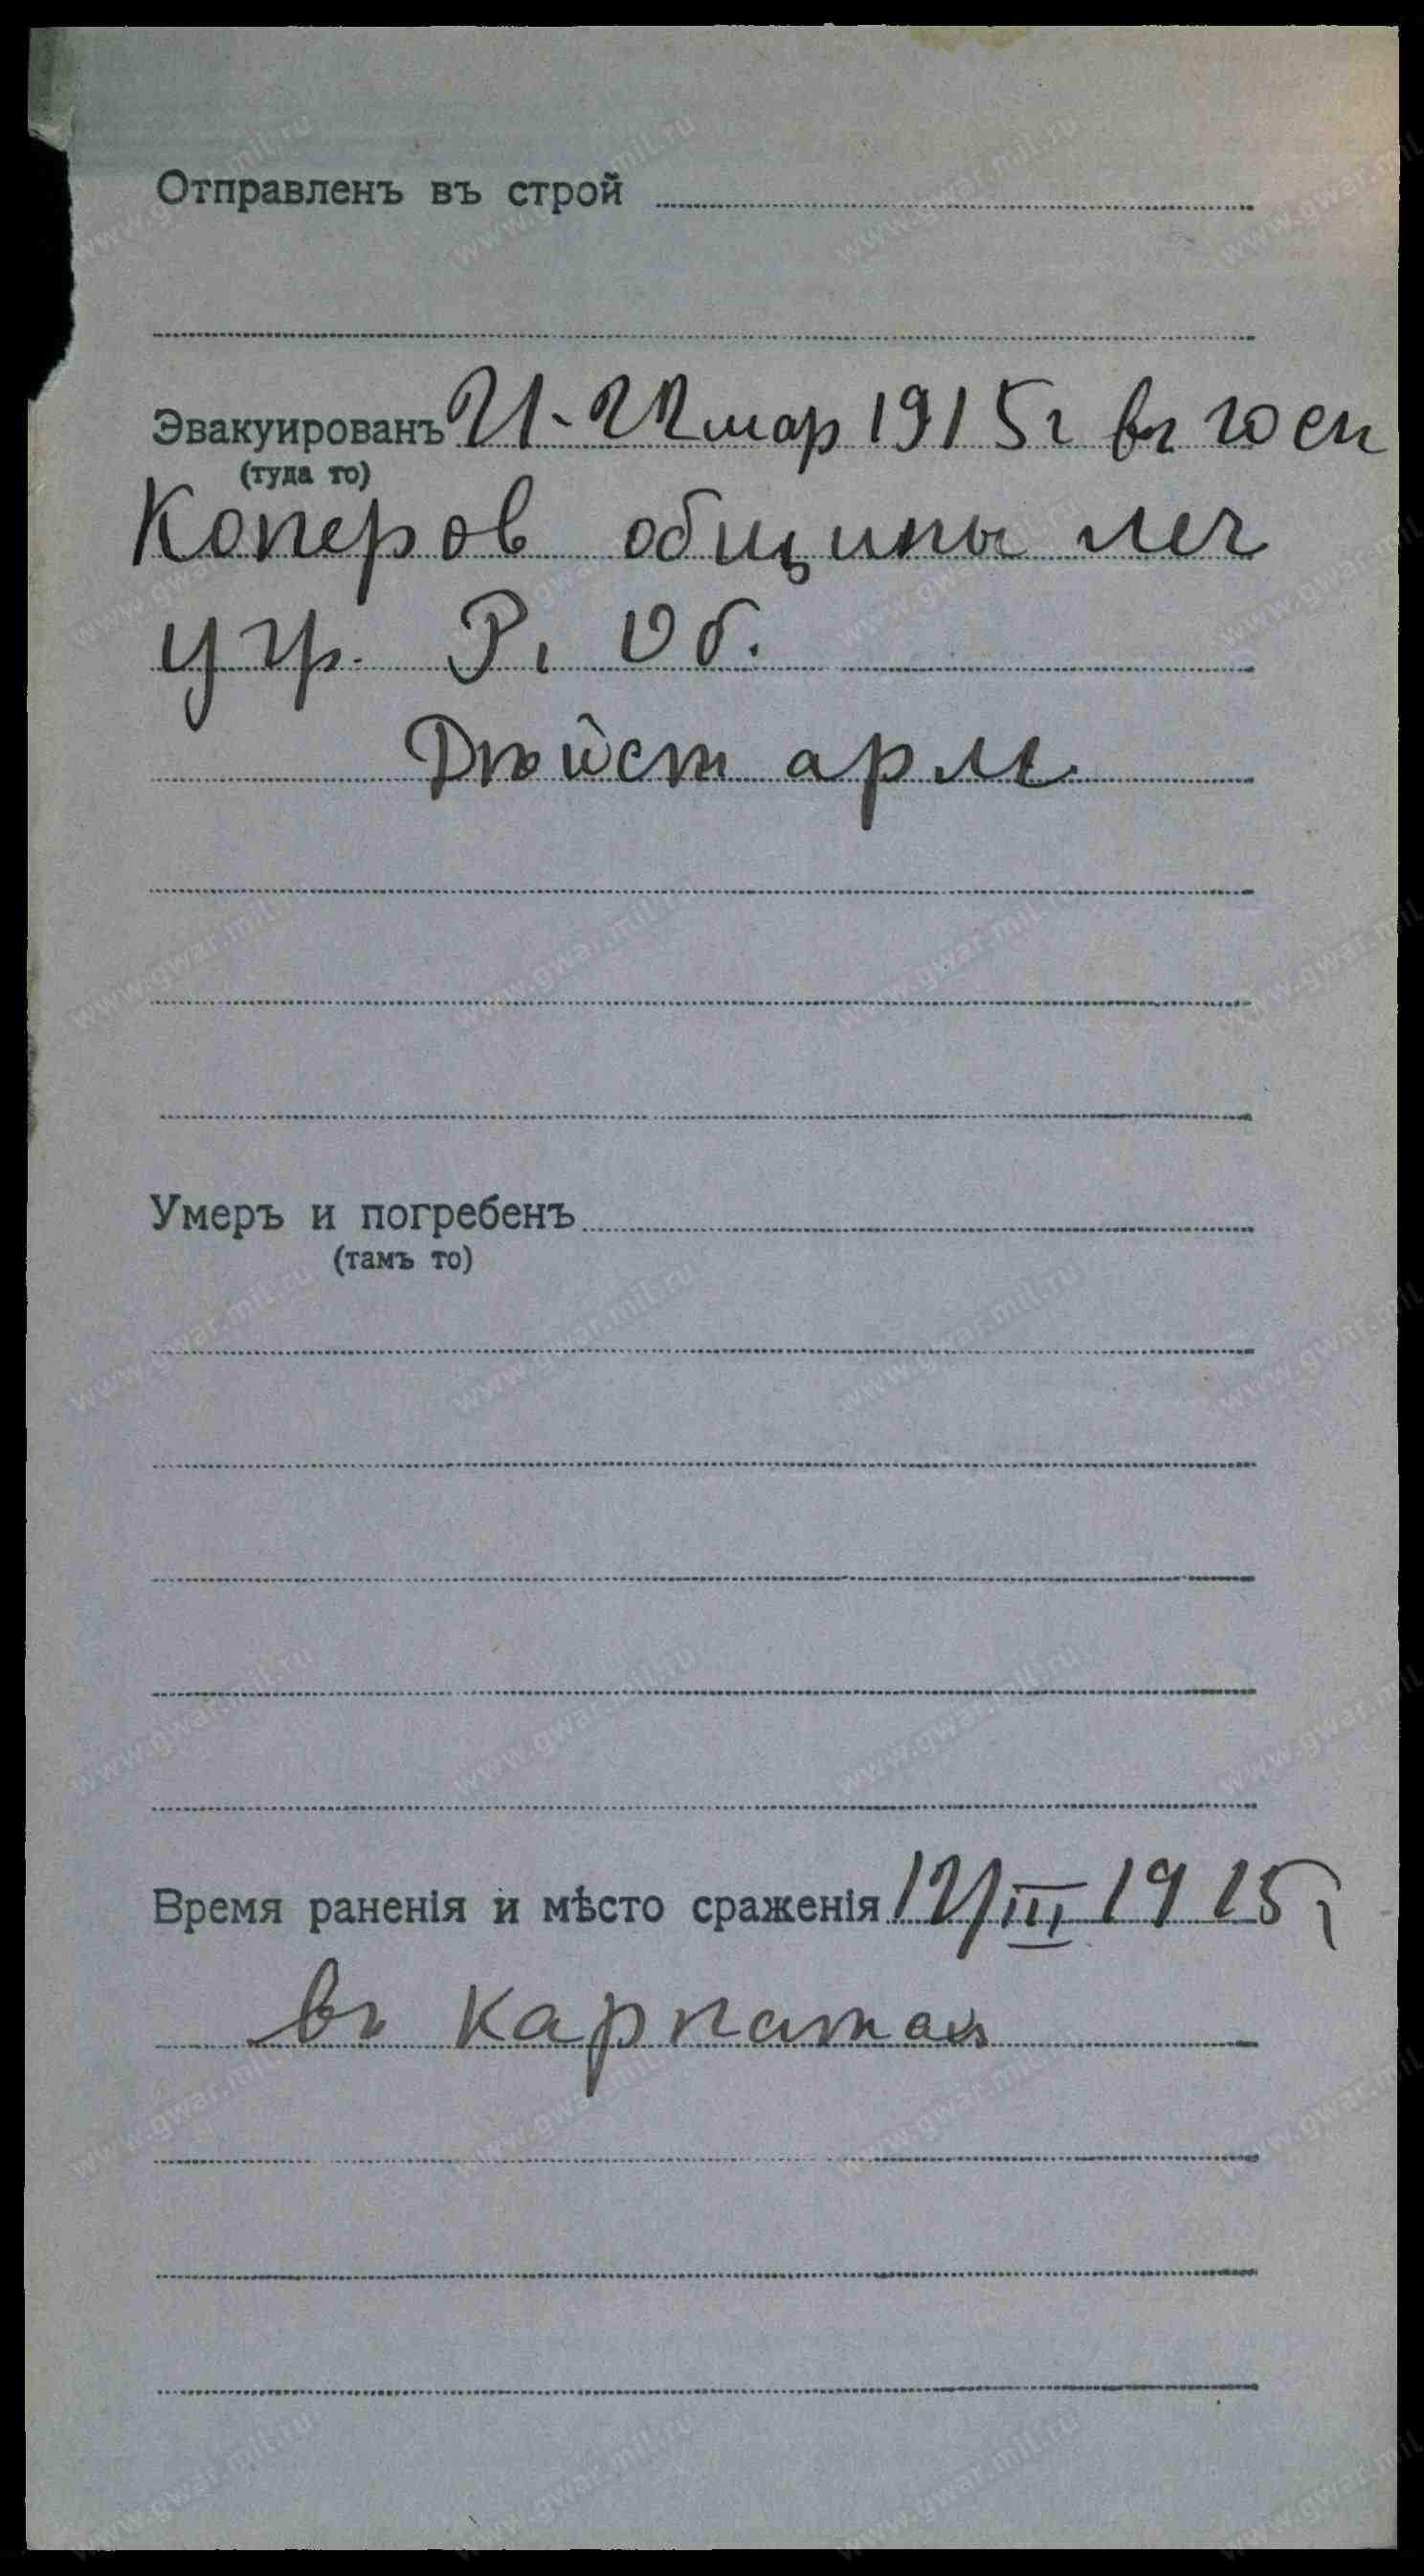 Отправленъ въ строй
Эвакуированъ 21-22 мар 1915 г въ госп
(туда то)
Коперов общины леч
учр. Р. Об.
Дѣйст арм.
Умеръ и погребенъ
(тамъ то)
Время раненія и мѣсто сраженія 12/III 1915 г
въ Карпатах
www.gwar.mil.ru